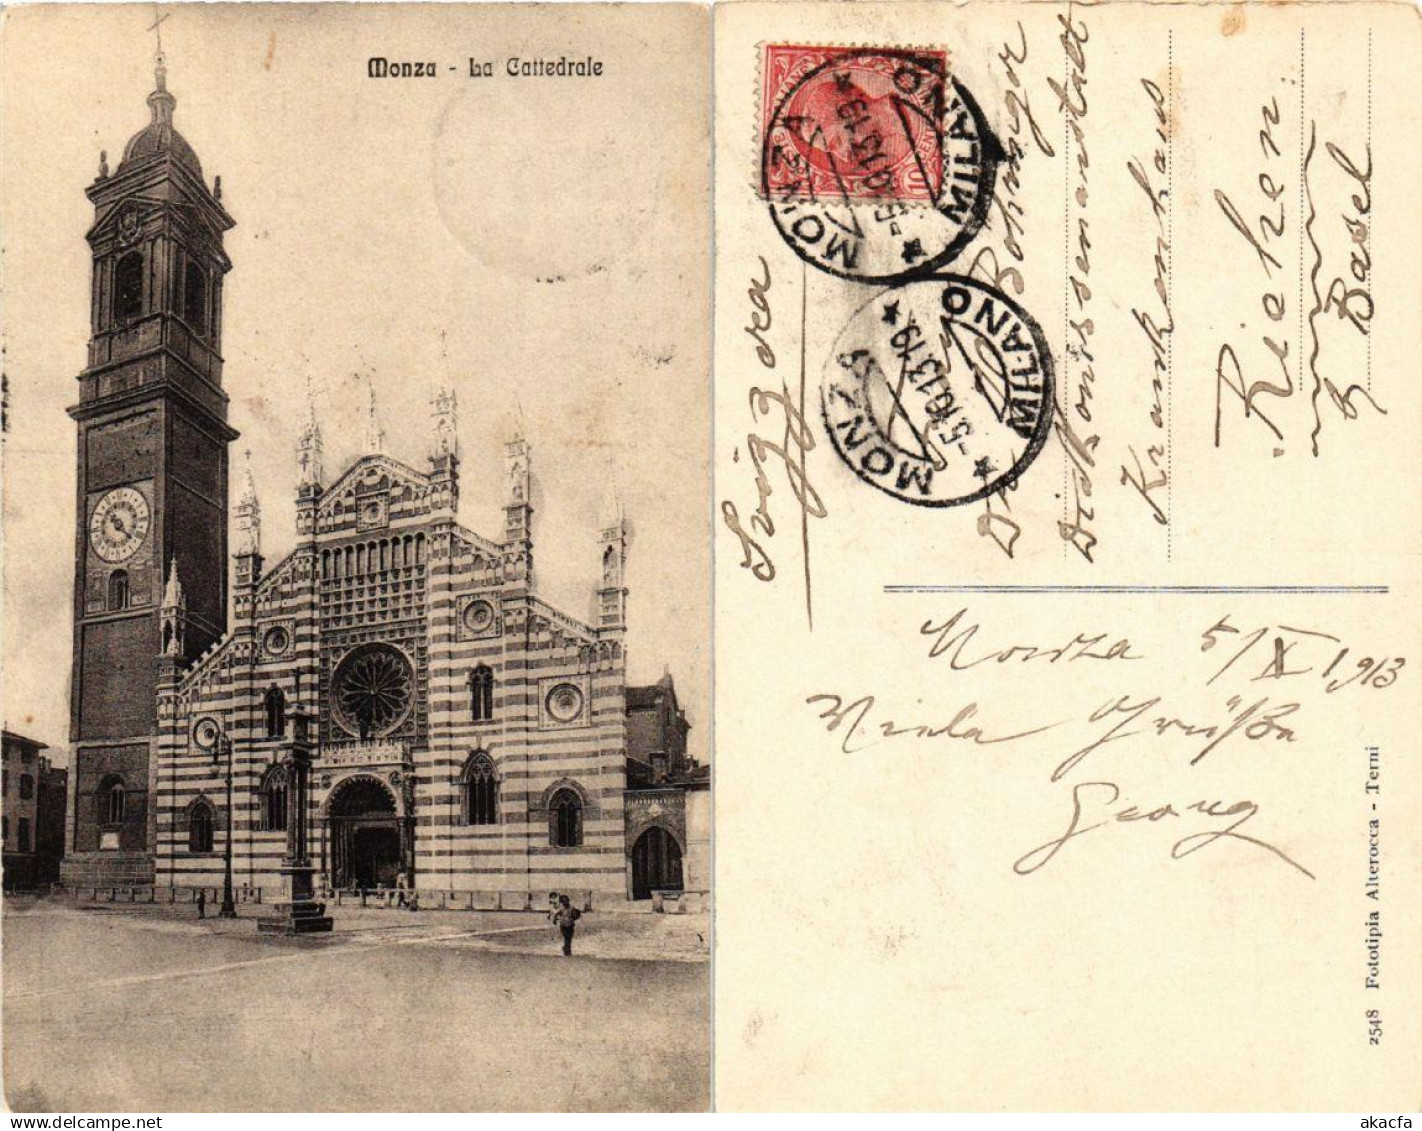 Monza - La Cattedrale
MONZA
MILANO
-5.10.13.19
MONZA
MILANO
-5.10.13.19
10
Svizzera
Bohringer
Diakonissenanstalt
Krankenhaus
Riehen
b/ Basel
Monza 5/X 1913
Viele Grüße
Georg
2548 Fototipia Alterocca - Terni
www.delcampe.net
akacfa